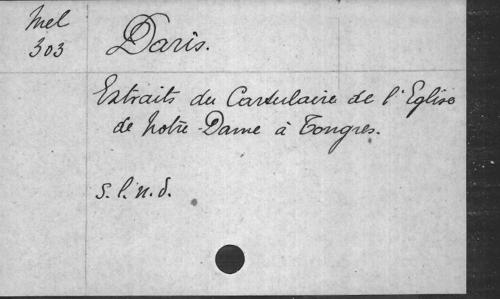 Mel
303
Daris.
Extraits du Cartulaire de l'Eglise
de Notre-Dame à Tongres.
s.l.n.d.